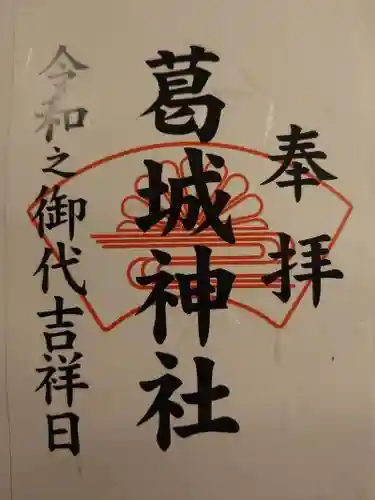 奉拝
葛城神社
令和之御代吉祥日